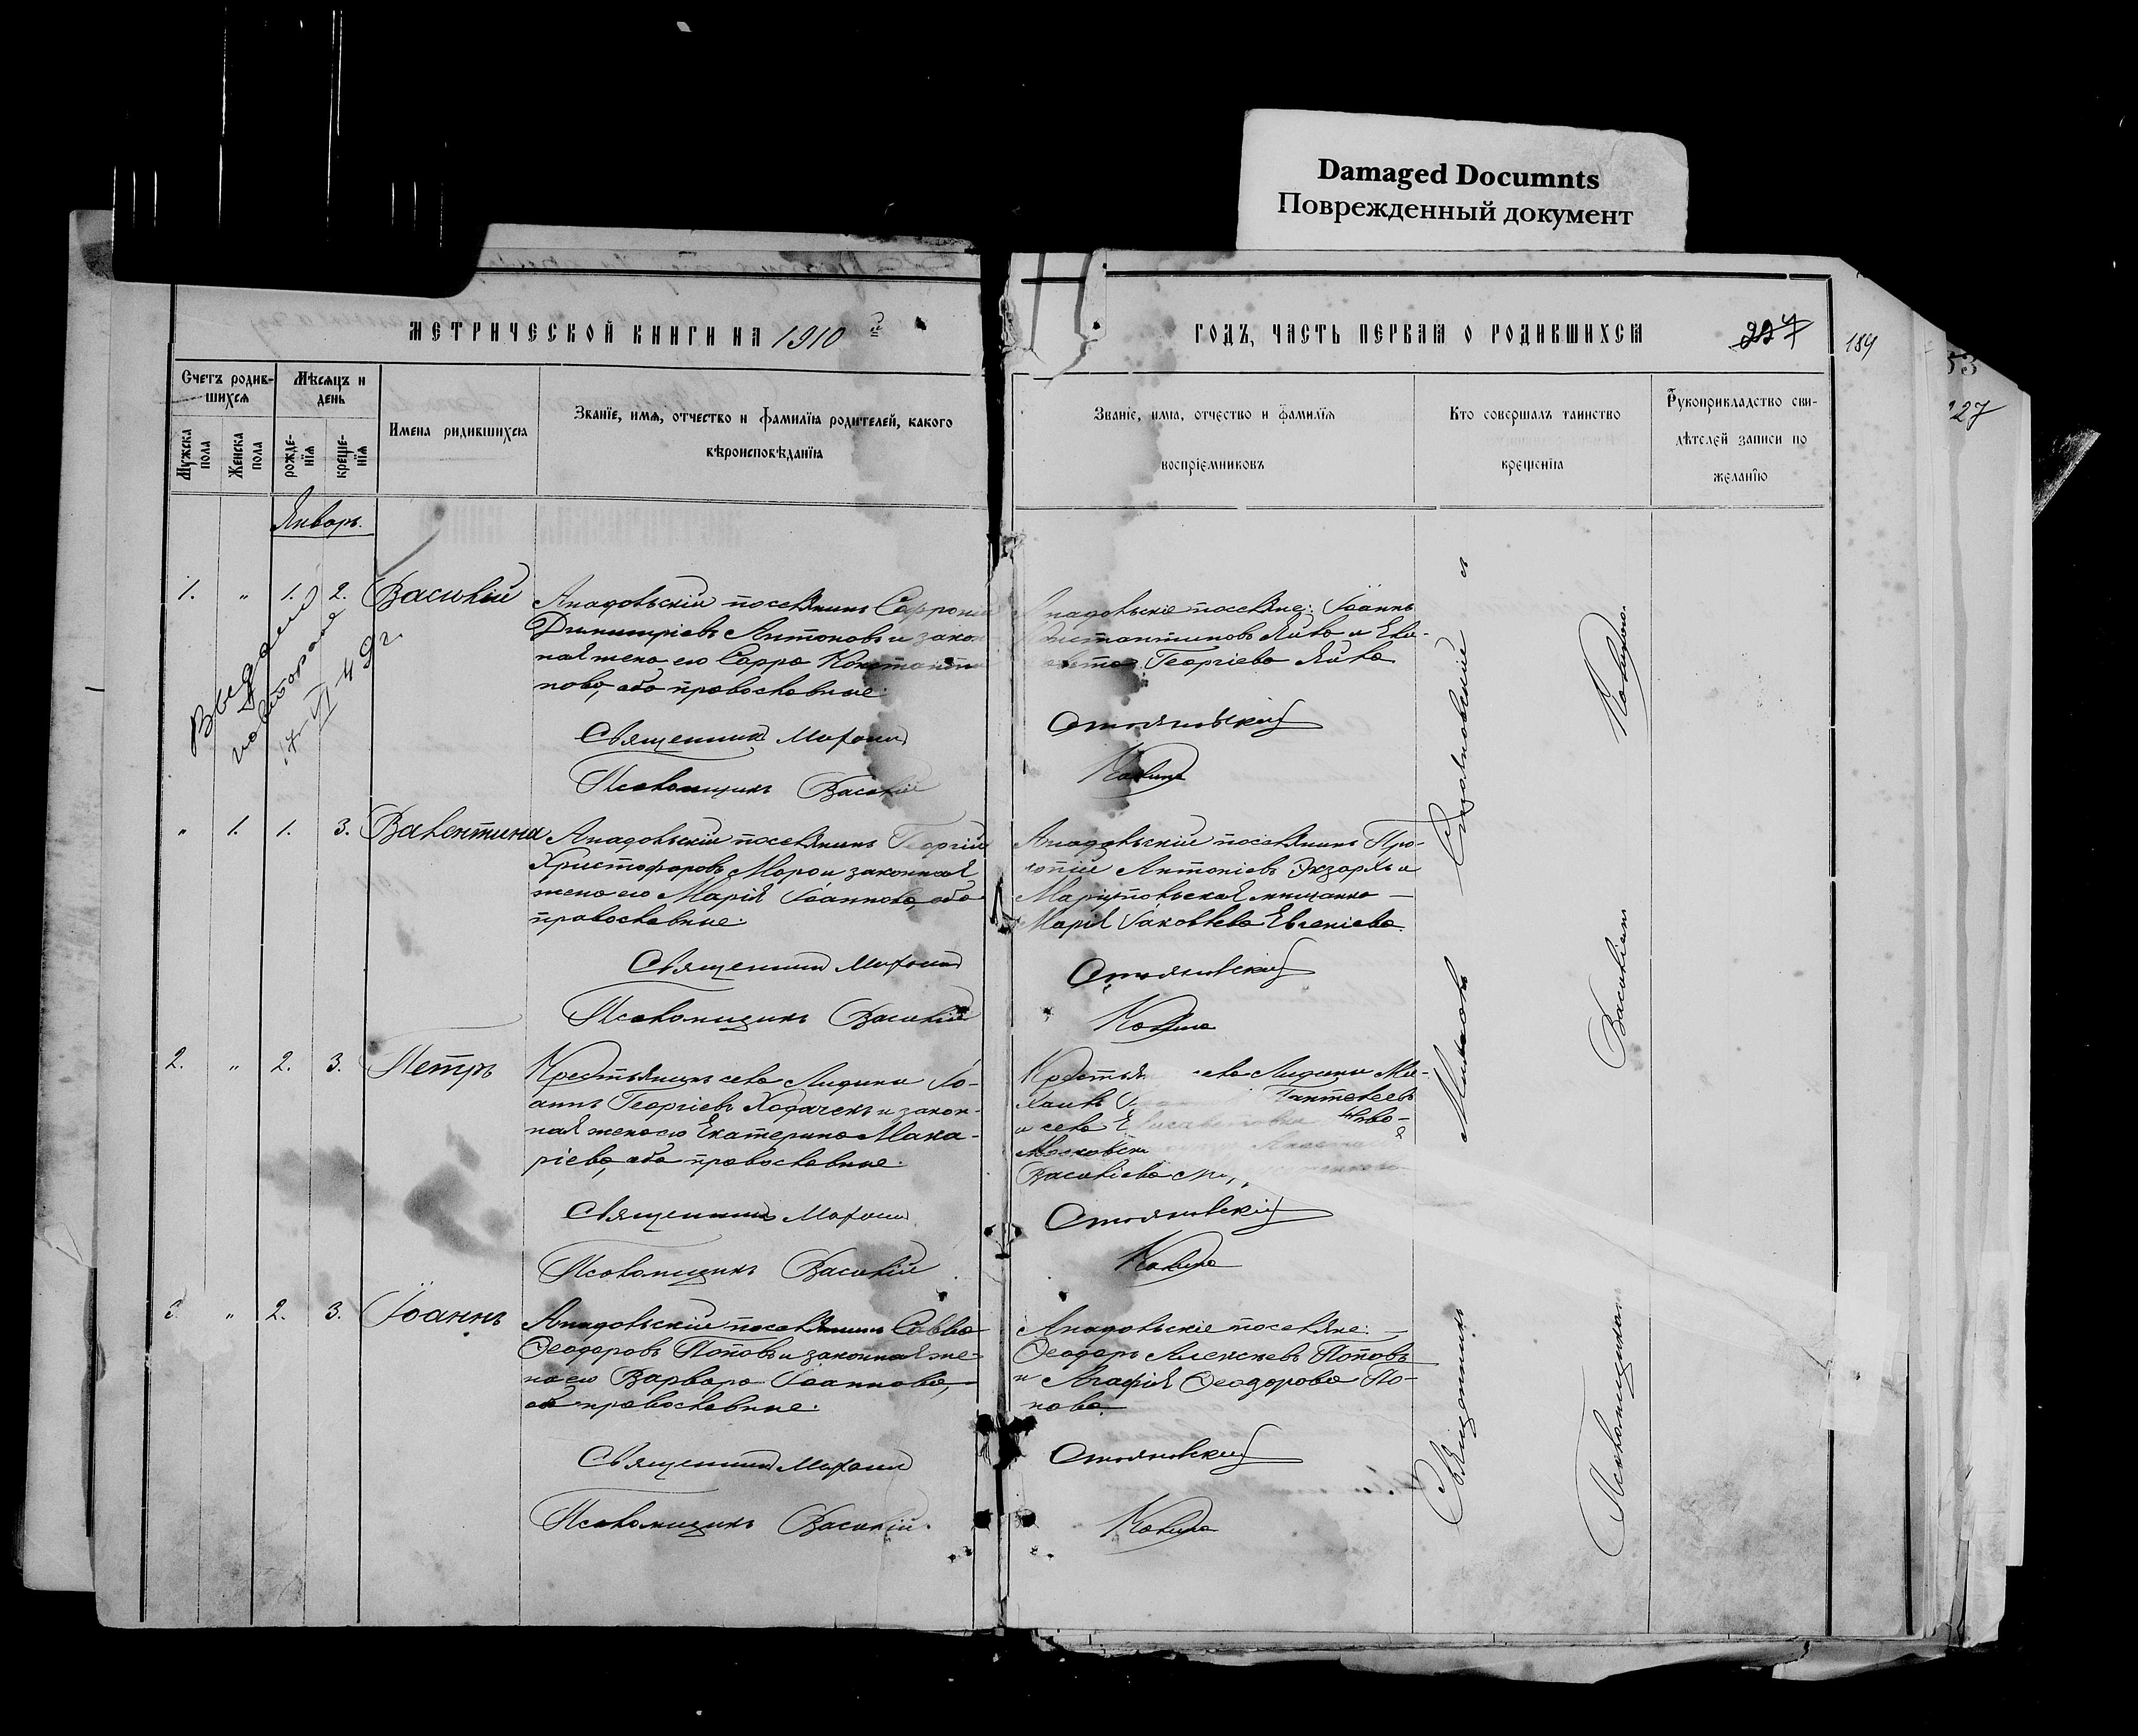 Damaged Documnts
Поврежденный документ
МЕТРИЧЕСКОЙ КНИГИ НА 1910
ГОДЪ, ЧАСТЬ ПЕРВАЯ О РОДИВШИХСЯ
227
189
53
27
Счетъ родив-
шихся
Мужска
пола
Женска
пола
Мѣсяцъ и
день
рожде-
нїя
креще-
нїя
Имена родившихся
Званїе, имя, отчество и фамилїя родителей, какого
вѣроисповѣданїя
Званїе, имя, отчество и фамилїя
воспрїемниковъ
Кто совершалъ таинство
крещенїя
Рукоприкладство сви-
дѣтелей записи по
желанїю
Январь.
1. " 1. 2. Василій
Анадольскій поселянинъ Софроній
Димитріевъ Антоновъ и закон-
ная жена его Сарра Константи
нова, оба православные.
Священникъ
Псаломщикъ Василій
Анадольскіе поселяне: Іоаннъ
Константиновъ и Ели-
Георгіева
Стояновскій
Выдано
повторное
VI 49 г.
" 1. 1. 3. Валентина
Анадольскій поселянинъ Георгій
Христофоровъ Мора и законная
жена его Марія Іоаннова, оба
православные.
Священникъ
Псаломщикъ Василій
Анадольскій поселянинъ Про-
копій Антоніевъ Экзархъ и
Маріупольская мещанка
Марія Іаковлева Евгеніева.
Стояновскій
2. " 2. 3. Петръ
Крестьянинъ села Лидина Іо-
аннъ Георгіевъ Ходачекъ и закон-
ная жена его Екатерина Мака-
ріева, оба православные.
Священникъ
Псаломщикъ Василій
села Лидина Ми-
хаилъ Пантелеевъ
и села
Василіева
Стояновскій
3. " 2. 3. Іоаннъ
Анадольскій поселянинъ Савва
Ѳеодоровъ Поповъ и законная же-
на его Варвара Іоаннова,
оба православные.
Священникъ
Псаломщикъ Василій
Анадольскіе поселяне:
Ѳеодоръ Алексѣевъ Поповъ
и Агафія Ѳеодорова По-
пова.
Стояновскій
Священникъ Стояновскій и
Псаломщикъ Василій